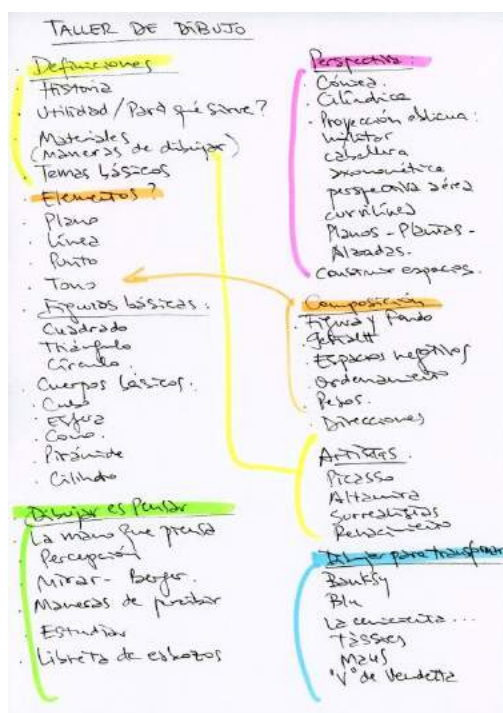 TALLER DE DIBUJO
. Definiciones
. Historia
. Utilidad / Para qué sirve?
. Materiales
(Maneras de dibujar)
. Temas básicos
. Elementos?
. Plano
. Línea
. Punto
. Tono
. Figuras básicas:
Cuadrado
Triángulo
Círculo.
. Cuerpos básicos.
. Cubo
. Esfera
. Cono.
. Pirámide
. Cilindro
. Dibujar es Pensar
. La mano que piensa
. Percepción
. Mirar - Berger.
. Maneras de
. Estudiar
. Libreta de esbozos
Perspectiva:
. Cónica.
. Cilíndrica
. Proyección oblicua:
militar
caballera
axonométrica
perspectiva aérea
curvilínea
Planos - Plantas -
Alzadas.
. Construir espacios.
. Composición
. Figura y Fondo
. Gestalt
. Espacios negativos
. Ordenamiento
. Pesos.
. Direcciones
. Artistas.
Picasso
Altamira
Surrealistas
Renacimiento
. Dibujar para transformar
Banksy
Blu
La cenicienta...
Tassies
Maus
"V" de Vendetta